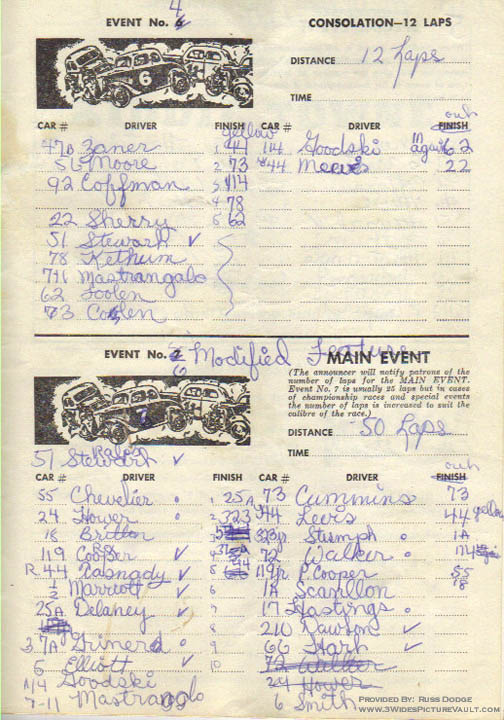 4
EVENT No. 6
CONSOLATION—12 LAPS
6
DISTANCE 12 Laps
TIME
yellow
out
CAR # DRIVER FINISH
CAR # DRIVER FINISH
47B Zaner 1 44
114 Goodski in again 62
56 Moore 2 73
44 22
92 Coffman 3 114
4 78
22 Sherry 5 62
51 Stewart ✓
78 Kethum
711 Mastrangalo
62 Toolen
73
EVENT No. 7
6
Modified Feature
MAIN EVENT
(The announcer will notify patrons of the
number of laps for the MAIN EVENT.
Event No. 7 is usually 25 laps but in cases
of championship races and special events
the number of laps is increased to suit the
calibre of the race.)
DISTANCE 50 Laps
TIME
51 Stewart ✓
out
CAR # DRIVER FINISH
CAR # DRIVER FINISH
55 Chevelier 1 25A
73 Cummins 73
24 Hower 2 323
44 Lewis 44 yellow
18 Britten 3
323 Stumph 1A
119 Cooper ✓ 4
72 Walker 114
R 44 Rasnady ✓ 5
119jr P. Cooper 55
1/2 Marriott ✓ 6
1A Scanllon 18
25A Delaney ✓ 7
17 Hastings
8
210 Dawson ✓
7A Grinerd 9
66 Stark ✓
6 Elliott ✓ 10
72 Walker
114 Goodski
24 Hower
7-11 Mastrangalo
6 Smith
PROVIDED BY: RUSS DODGE
WWW.3WIDESPICTUREVAULT.COM